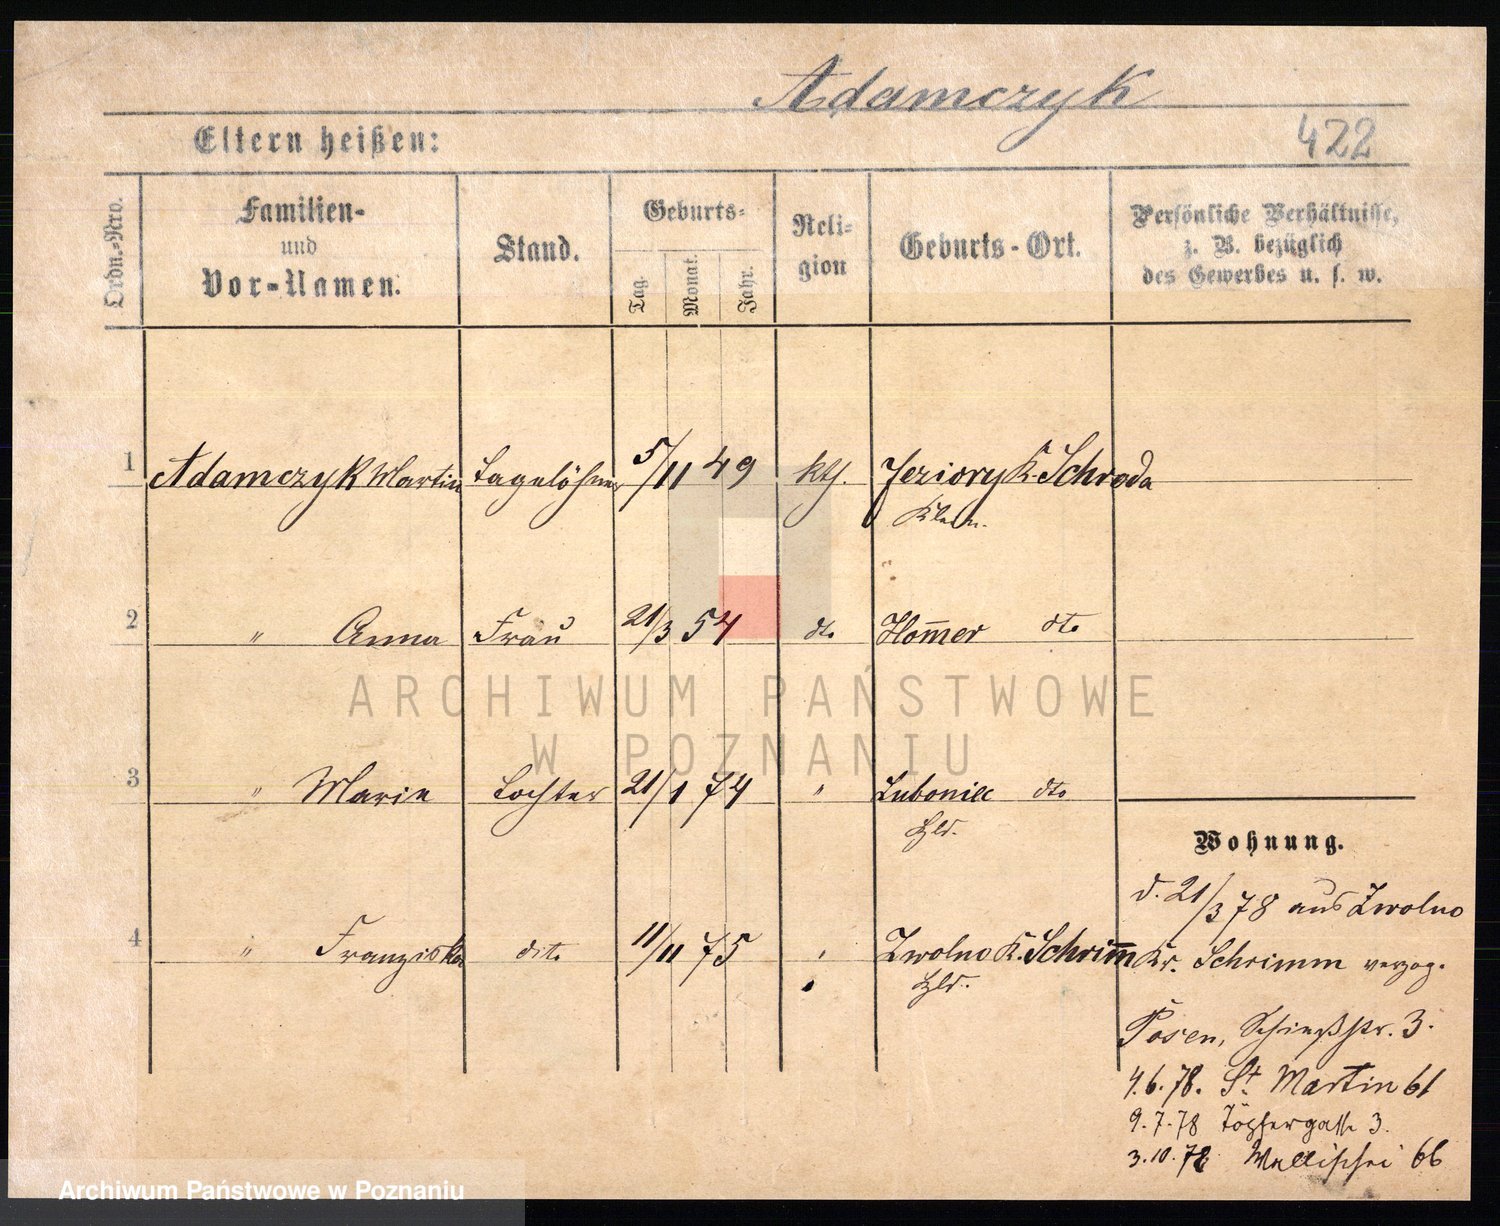 Adamczyk
Eltern heißen:
422
Ordn.-Nro.
Familien-
und
Vor-Namen.
Stand.
Geburts-
Tag.
Monat.
Jahr.
Reli-
gion
Geburts-Ort.
Persönliche Verhältnisse,
z. B. bezüglich
des Gewerbes u. s. w.
1 Adamczyk Martin Tagelöhner 5/11 49 kth. Jeziory K. Schroda
Klein.
2 " Anna Frau 21/3 54 dto Hom̅er dto
3 " Marie Tochter 21/1 74 " Luboniec dto
Hld.
4 " Franziska dito 11/11 75 " Zwolno K. Schrim̅
Hld.
Wohnung.
d. 21/3 78 aus Zwolno
Kr. Schrimm verzog.
Posen, Schießstr. 3.
4.6.78. St Martin 61
9.7.78 Töpfergasse 3.
3.10.78 Wallischei 66
ARCHIWUM PAŃSTWOWE
W POZNANIU
Archiwum Państwowe w Poznaniu